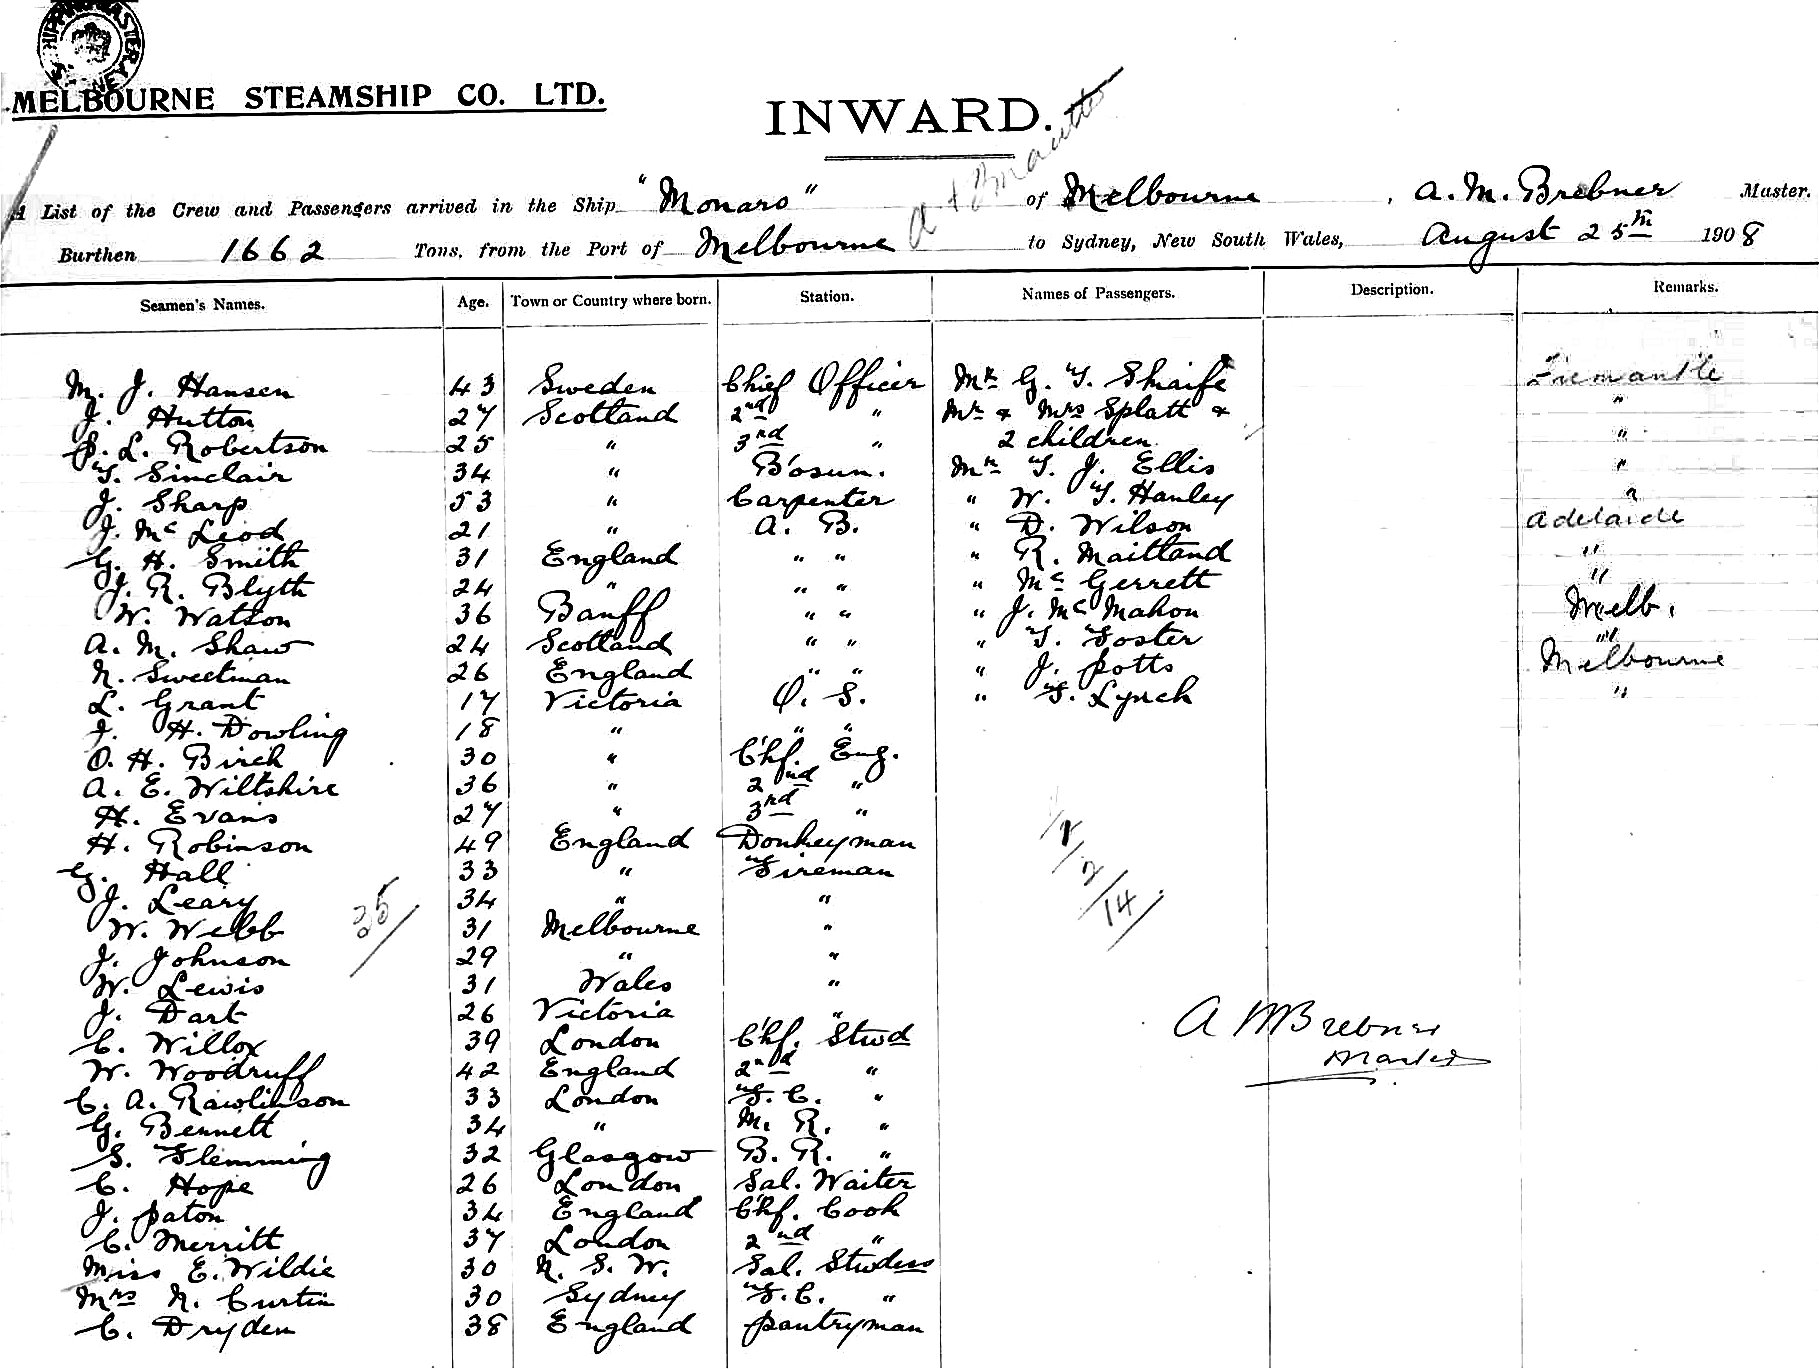 MELBOURNE STEAMSHIP CO. LTD.
INWARD.
A List of the Crew and Passengers arrived in the Ship "Monaro" of Melbourne, A. M. Brebner Master.
Burthen 1662 Tons, from the Port of Melbourne to Sydney, New South Wales, August 25th 1908
Seamen's Names. Age. Town or Country where born. Station. Names of Passengers. Description. Remarks.
M. J. Hansen 43 Sweden Chief Officer Mr G. F. Shaife Fremantle
J. Hutton 27 Scotland 2nd " Mr & Mrs Splatt & "
P. L. Robertson 25 " 3rd " 2 children "
F. Sinclair 34 " B'osun. Mr F. J. Ellis "
J. Sharp 53 " Carpenter " W. F. Hanley "
J. Mc Leod 21 " A. B. " D. Wilson Adelaide
G. H. Smith 31 England " " " R. Maitland "
J. R. Blyth 24 " " " " Mc Gerrett "
W. Watson 36 Banff " " " J. Mc Mahon Melb.
A. M. Shaw 24 Scotland " " " F. Foster "
N. Sweetman 26 England " " " J. Potts Melbourne
L. Grant 17 Victoria O. S. " F. Lynch "
J. H. Dowling 18 " " "
O. H. Birch 30 " Chf. Eng.
A. E. Wiltshire 36 " 2nd "
H. Evans 27 " 3rd "
H. Robinson 49 England Donkeyman
G. Hall 33 " Fireman
J. Leary 34 " "
W. Webb 35 31 Melbourne "
J. Johnson 29 " "
W. Lewis 31 Wales "
J. Dart 26 Victoria "
C. Willox 39 London Chf. Stwd
W. Woodruff 42 England 2nd "
C. A. Rawlinson 33 London F. C. "
G. Bennett 34 " M. R. "
S. Flemming 32 Glasgow B. R. "
C. Hope 26 London Sal. Waiter
J. Paton 34 England Chf. Cook
C. Merritt 37 London 2nd "
Miss E. Wildie 30 N. S. W. Sal. Stwdess
Mrs N. Curtin 30 Sydney F. C. "
C. Dryden 38 England Pantryman
2/14
A M Brebner
Master